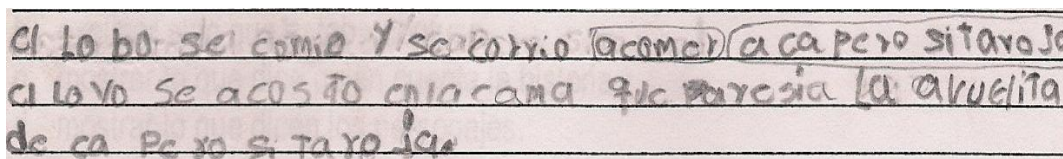 el Lo bo se comio y se corrio acomer a ca pero sitaroJa
el Lo vo se acosto enlacama que paresia La aruelita
de ca Pe ro si Taro Ja.